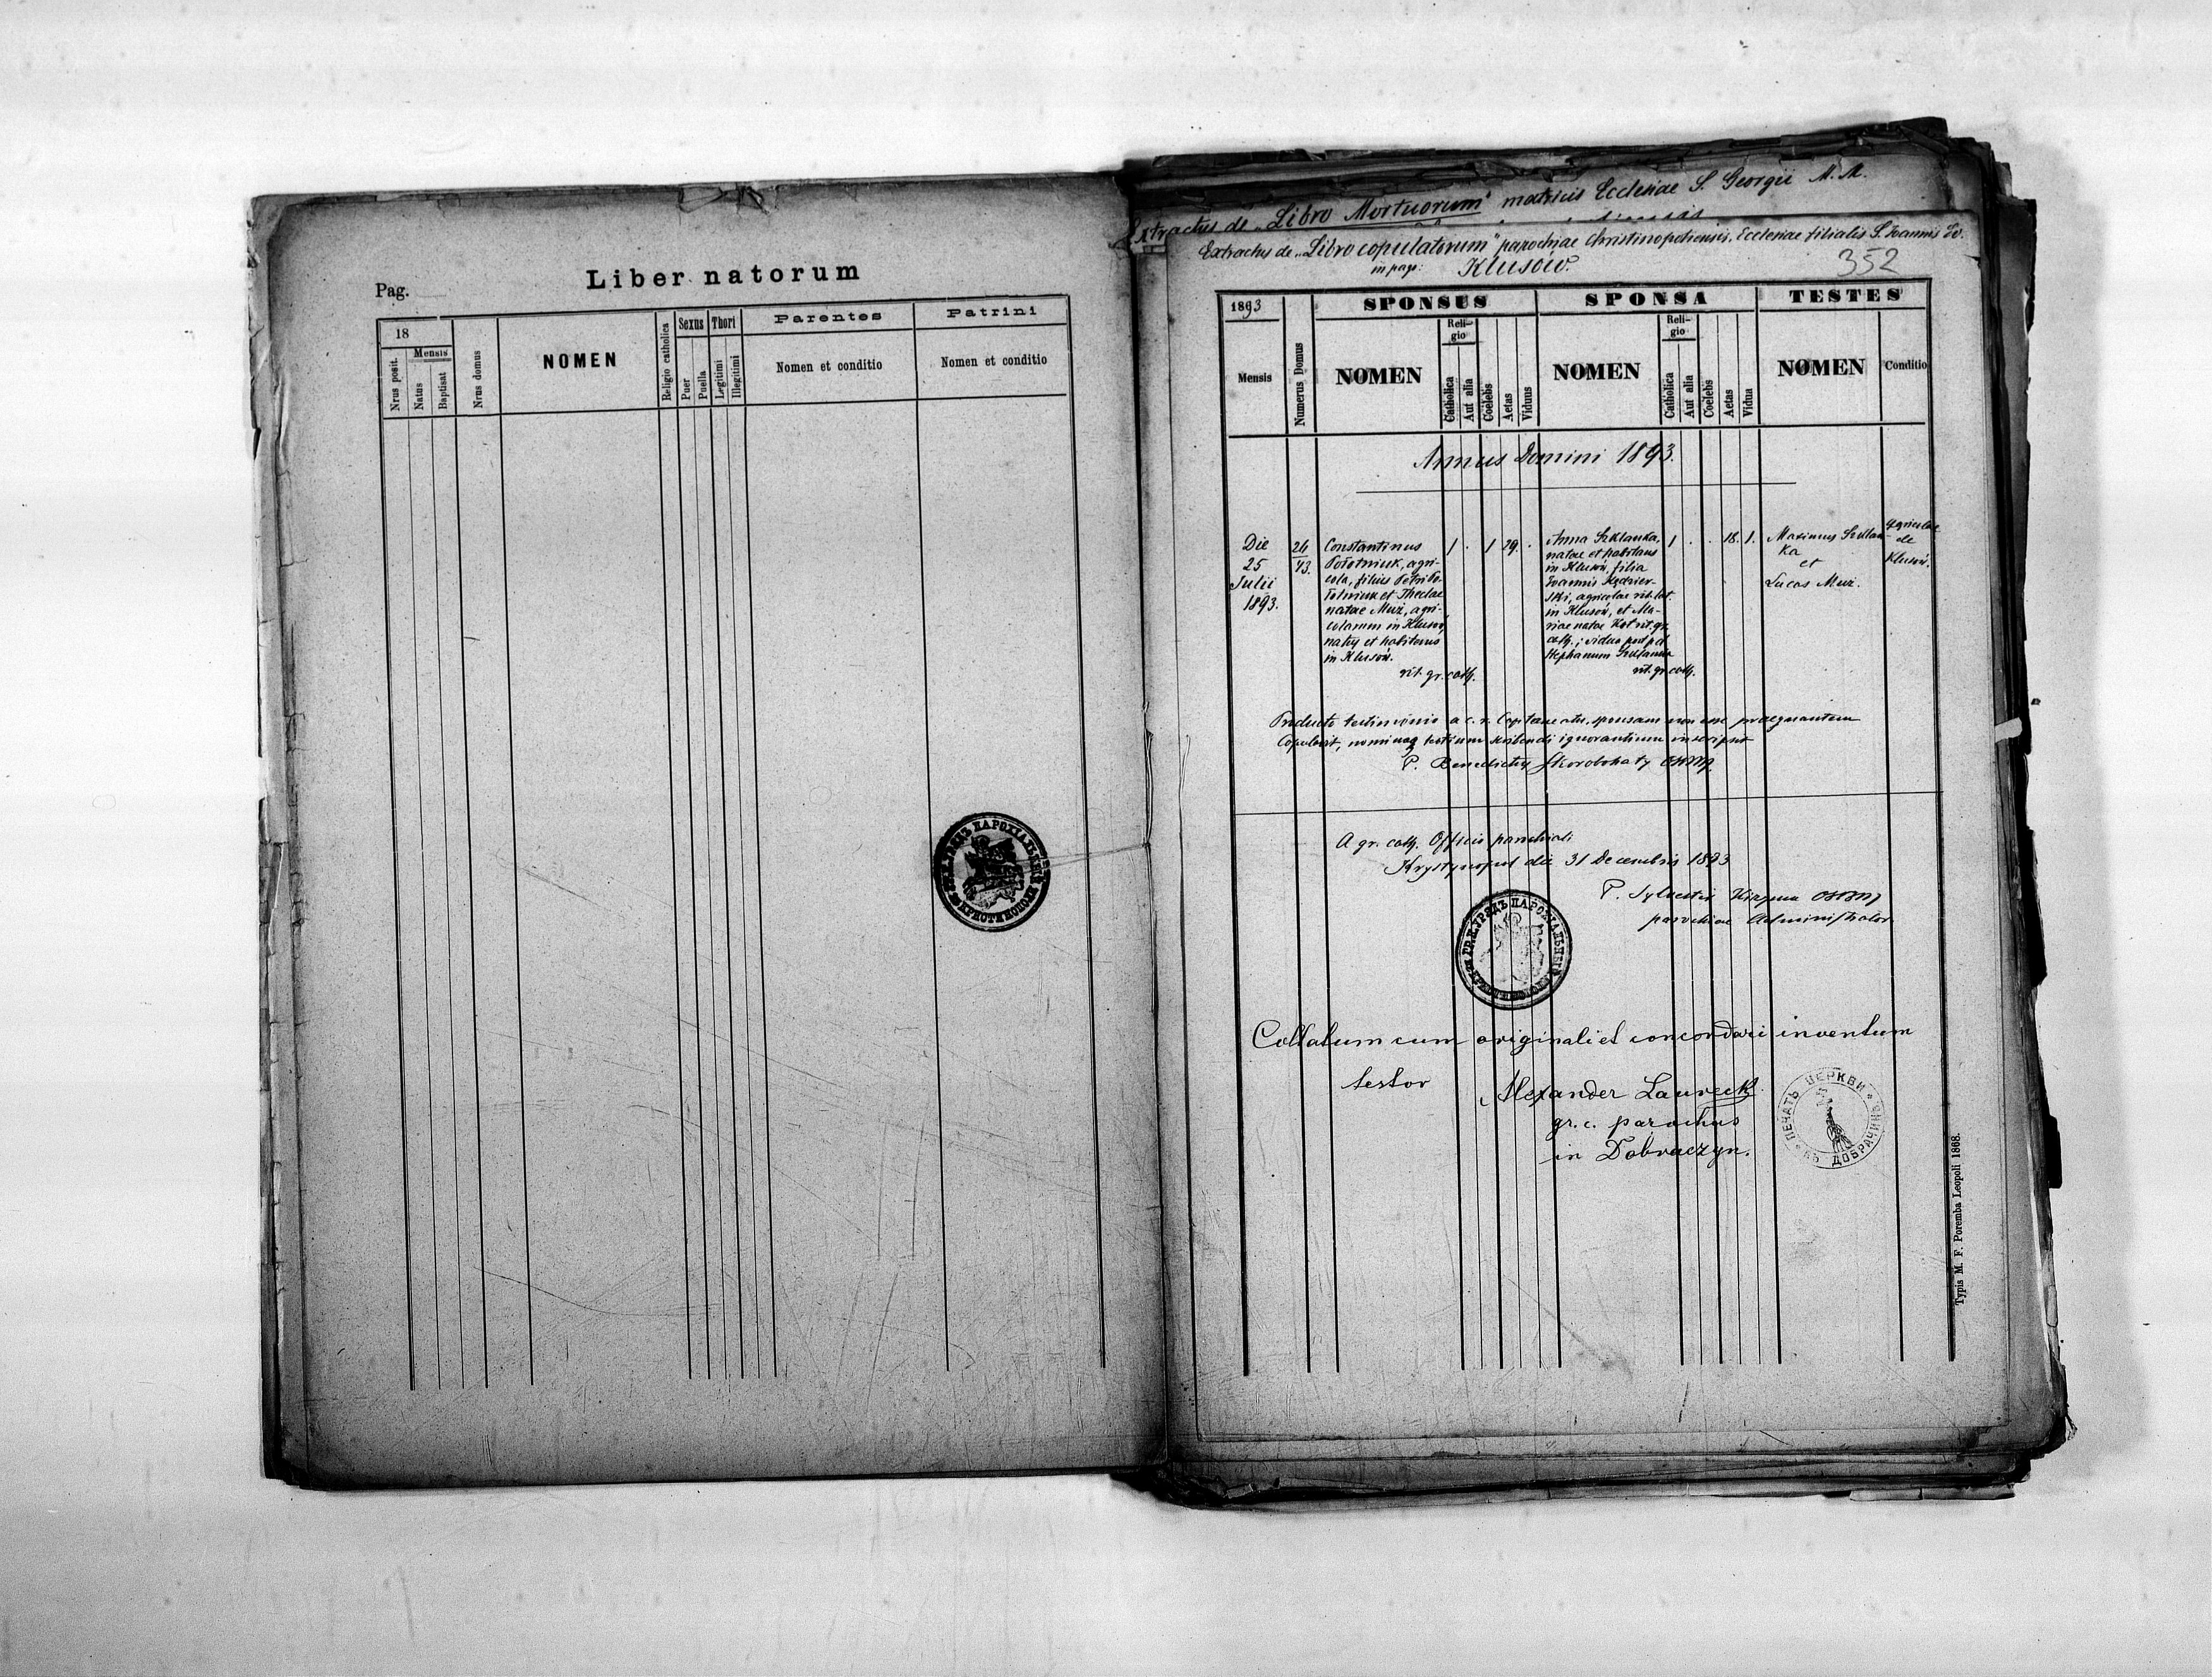 Pag.
Liber natorum
18
Mensis
Nrus posit.
Natus
Baptisat
Nrus domus
NOMEN
Religio catholica
Sexus
Puer
Puella
Thori
Legitimi
Illegitimi
Parentes
Nomen et conditio
Patrini
Nomen et conditio
Extractus de „Libro Mortuorum" matricis Ecclesiae S. Georgii M. M.
Extractus de „Libro copulatorum" parochiae Christinopoliensis, Ecclesiae filialis S. Joannis Ev.
in pago: Klusów.
352
1893
SPONSUS
SPONSA
TESTES
Mensis
Numerus Domus
NOMEN
Religio
Catholica
Aut alia
Coelebs
Aetas
Viduus
NOMEN
Religio
Catholica
Aut alia
Coelebs
Aetas
Vidua
NOMEN
Conditio
Annus Domini 1893.
Die
25
Julii
1893.
43.
Constantinus
Połotniuk, agri-
cola, filius Petri Po-
łotniuk et Theclae
natae Muż, agri-
colarum in Klusów,
natus et habitans
in Klusów.
rit. gr. cath.
1 . 1 29. .
Anna Szklanka,
natae et habitans
in Klusów, filia
Joannis Kędzier-
ski, agricolae rit. lat.
in Klusów, et Ma-
riae natae Kot rit. gr.
cath.; vidua post pd
Stephanum Szklanka
rit. gr. cath.
1 . . 18. 1.
Maximus Szklan-
ka
et
Lucas Muż.
Agricolae
de
Klusów.
Producto testimonio a c. r. Capitaneatu, sponsam non esse praegnantem
Copulavit, nominaq testium scribendi ignorantium inscripsit
P. Benedictus Skorobohaty OSBM.
A gr. cath. Officio parochiali
Krystynopol die 31 Decembris 1893
P. Sylvester
parochiae Administrator
Collatum cum originali et concordari inventum
testor
Alexander Laureck
gr. c. parochus
in Dobraczyn.
ПЕЧАТЬ ЦЕРКВИ
ВЪ ДОБРАЧИНѢ
Typis M. F. Poremba Leopoli 1868.